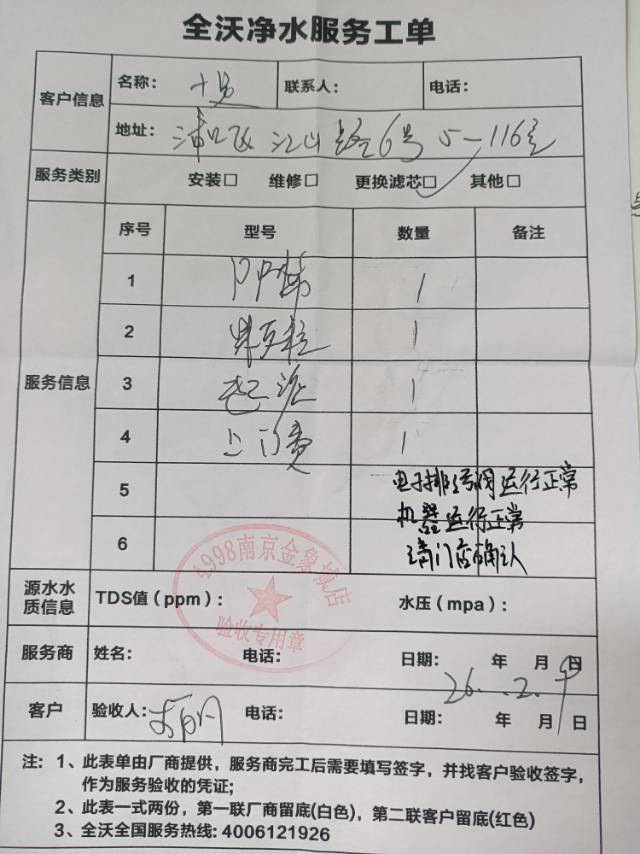 全沃净水服务工单
客户信息
名称： 联系人： 电话：
地址： 浦口区江山路6号5-116室
服务类别 安装□ 维修□ 更换滤芯□ 其他□
服务信息
序号 型号 数量 备注
1 PP棉 1
2 1
3 1
4 上门费 1
5
6
电子排污阀运行正常
机器运行正常
请门店确认
4998南京金象城店
验收专用章
源水水质信息 TDS值（ppm）： 水压（mpa）：
服务商 姓名： 电话： 日期： 年 月 日
26.2.9
客户 验收人： 电话： 日期： 年 月 日
注：1、此表单由厂商提供，服务商完工后需要填写签字，并找客户验收签字，
作为服务验收的凭证；
2、此表一式两份，第一联厂商留底(白色)，第二联客户留底(红色)
3、全沃全国服务热线：4006121926